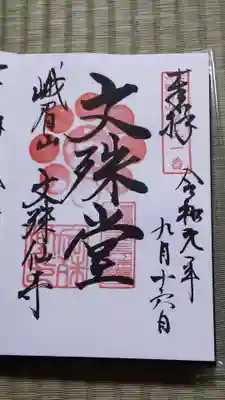 奉拝
一番
令和元年
九月十六日
文殊堂
峨眉山 文殊仙寺